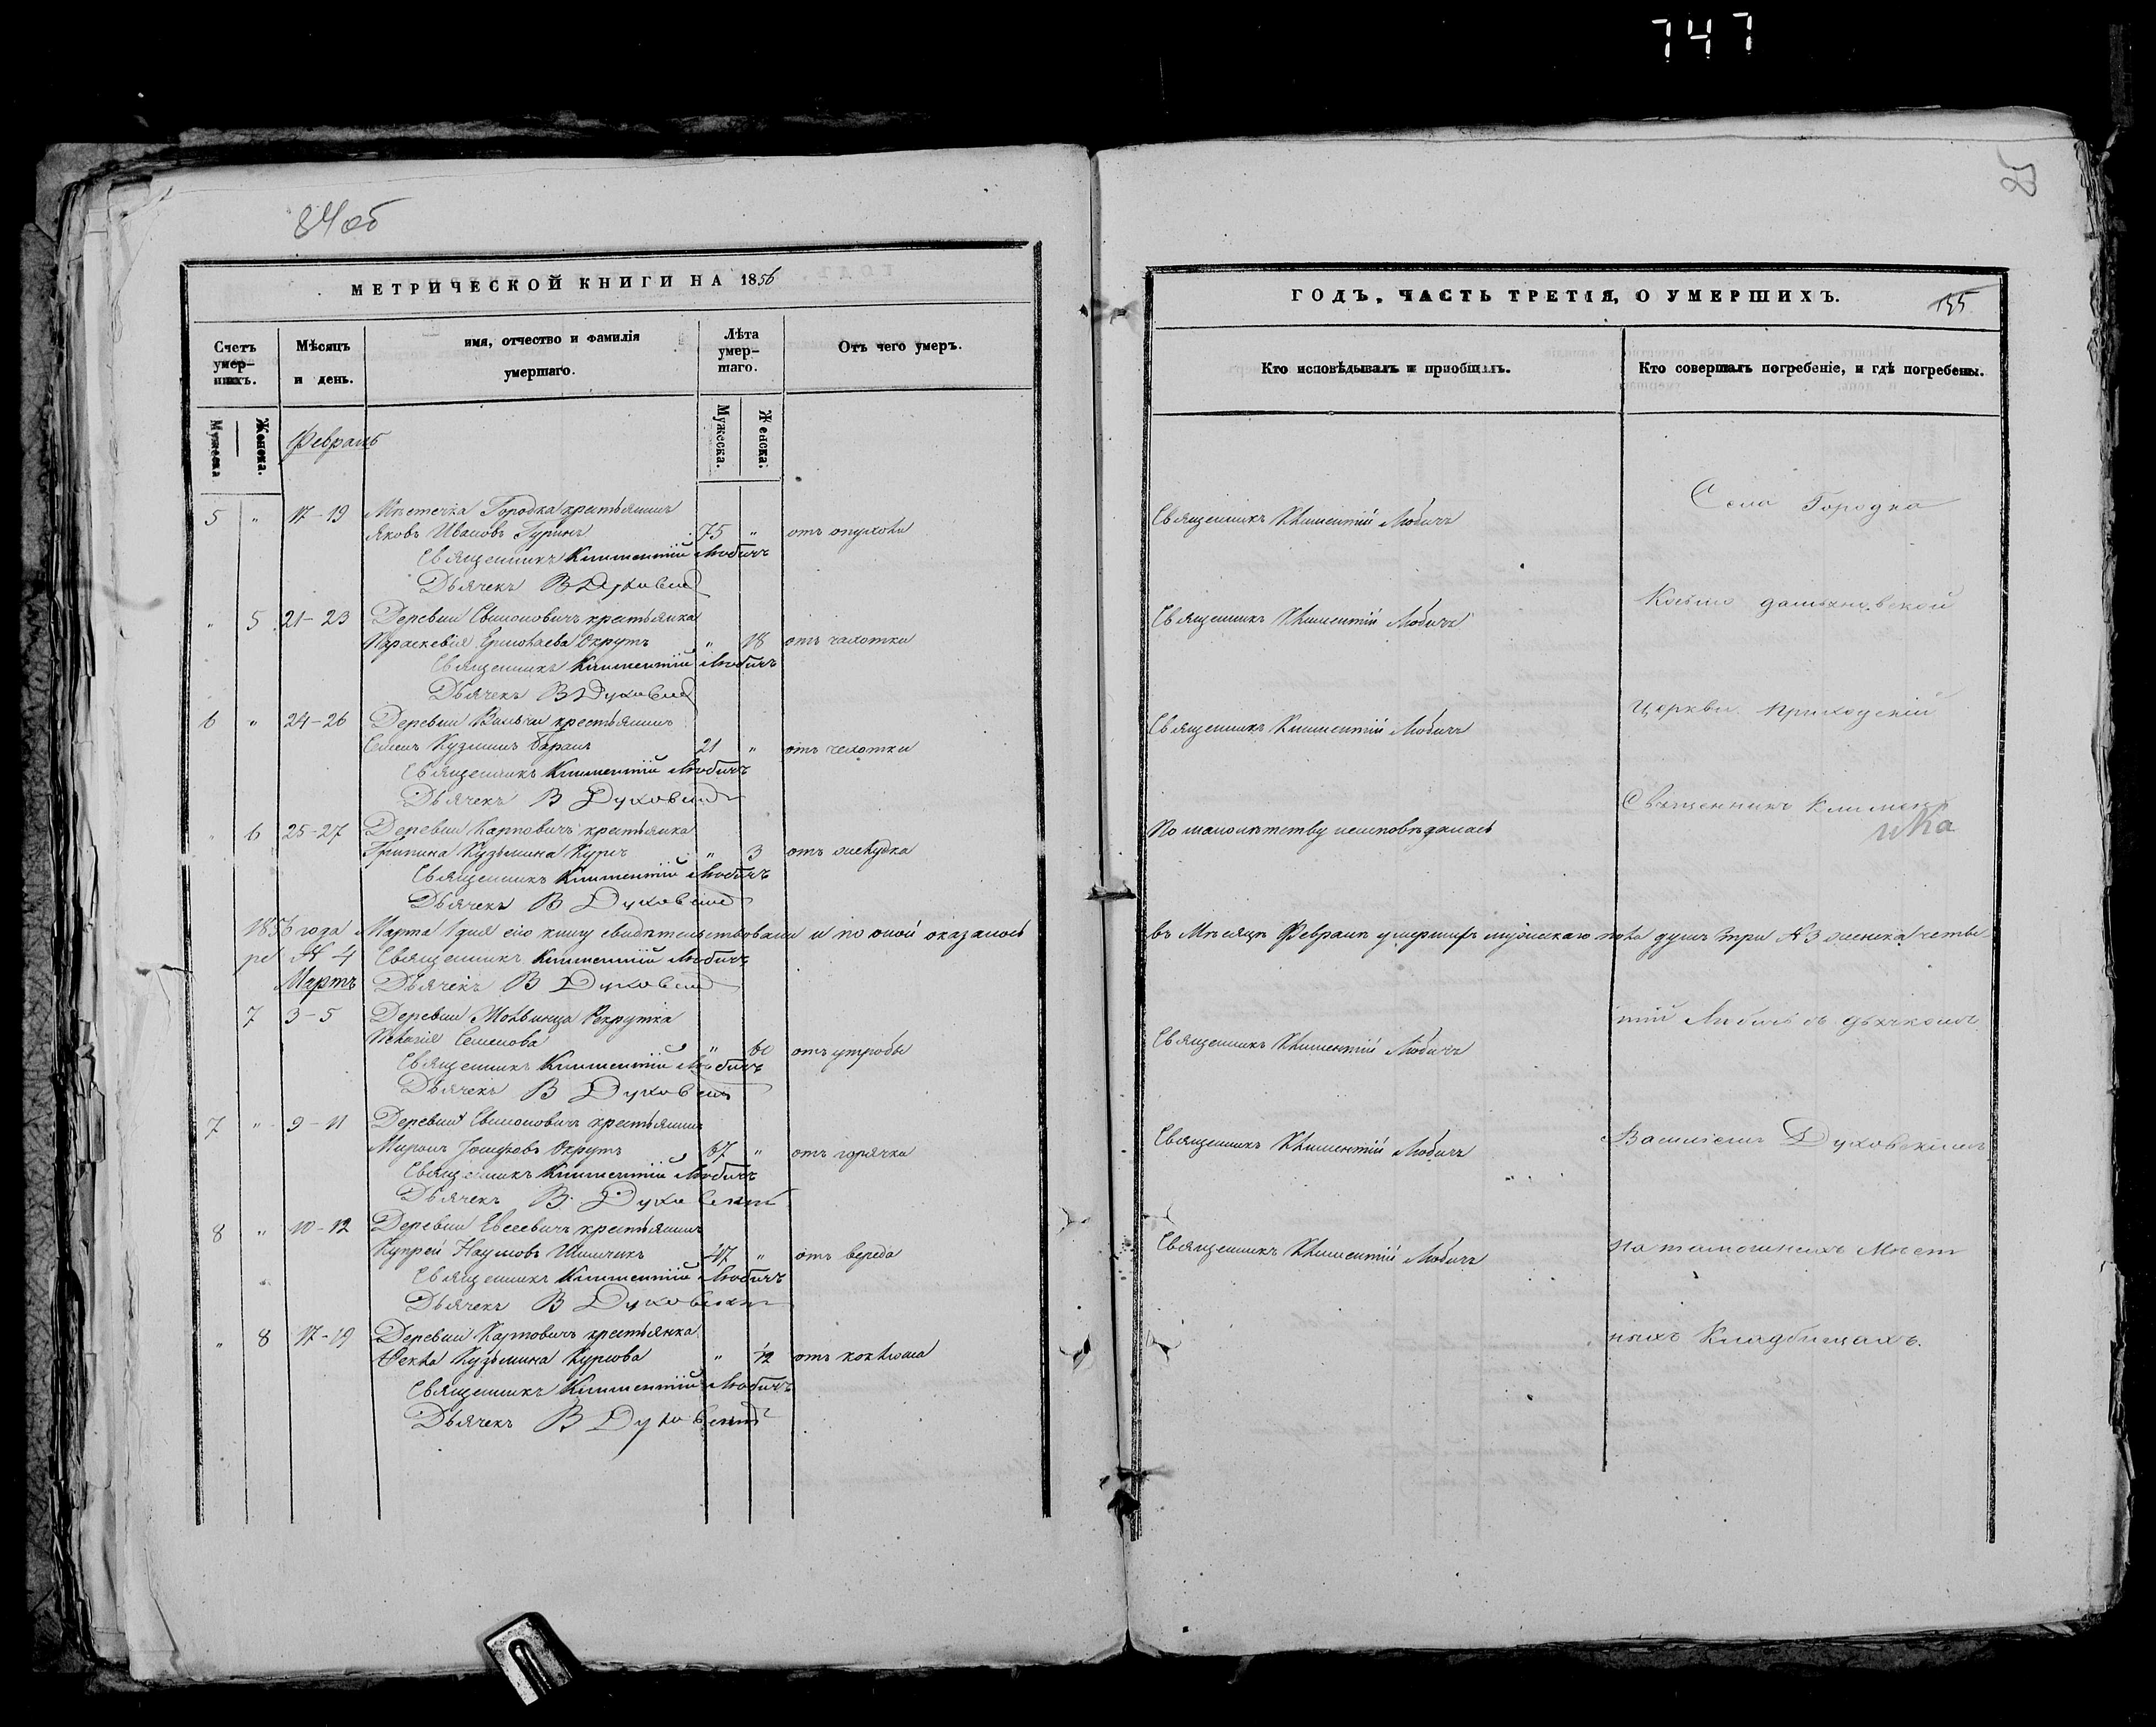 747
84об
МЕТРИЧЕСКОЙ КНИГИ НА 1856
Счетъ умер-шихъ.
Мѣсяцъ и день.
имя, отчество и фамилія умершаго.
Лѣта умер-шаго.
Отъ чего умеръ.
Мужеска
Женска.
Мужеска.
Женска.
Февраль
5 " 17-19 Мѣстечка Городка крестьянинъ
Яковъ Ивановъ Гуринъ 75 " отъ опухоли
Священникъ Климентій Любичъ
Дьячекъ В Духовскій
" 5 21-23 Деревни Свиловичъ крестьянка
Параскевія Ермолаева Окрутъ " 18 отъ чахотки
Священникъ Климентій Любичъ
Дьячекъ В Духовскій
6 " 24-26 Деревни крестьянинъ
Семенъ Кузминъ Баранъ 21 " отъ чахотки
Священникъ Климентій Любичъ
Дьячекъ В Духовскій
" 6 25-27 Деревни Карповичъ крестьянка
Грипина Кузьмина " 3 отъ желудка
Священникъ Климентій Любичъ
Дьячекъ В Духовскій
1856 года Марта 1 дня сію книгу свидѣтельствовали и по оной оказалось
ре № 4 Священникъ Климентій Любичъ
Мартъ Дьячекъ В Духовскій
7 3-5 Деревни Рекрутка
Семенова " 60 отъ утробы
Священникъ Климентій Любичъ
Дьячекъ В Духовскій
7 " 9-11 Деревни Свиловичъ крестьянинъ
Миронъ Іосифовъ Окрутъ 67 " отъ горячки
Священникъ Климентій Любичъ
Дьячекъ В. Духовскій
8 " 10-12 Деревни Евсеевичъ крестьянинъ
Купрей Наумовъ 47 " отъ вереда
Священникъ Климентій Любичъ
Дьячекъ В Духовскій
" 8 17-19 Деревни Карповичъ крестьянка
Фекла Кузьмина " 1/2 отъ коклюша
Священникъ Климентій Любичъ
Дьячекъ В Духовскій
ГОДЪ, ЧАСТЬ ТРЕТІЯ, О УМЕРШИХЪ.
Кто исповѣдывалъ и пріобщалъ.
Кто совершалъ погребеніе, и гдѣ погребены.
Священникъ Климентій Любичъ
Села Городка
Священникъ Климентій Любичъ
Священникъ Климентій Любичъ
Церкви Приходскій
По малолѣтству неисповѣдалась
Священникъ Климен
въ Мѣсяцѣ Февралѣ умершихъ мужескаго пола душъ три № 3 женска четы
Священникъ Климентій Любичъ
тій Любичъ съ дьячкомъ
Священникъ Климентій Любичъ
Василіемъ Духовскимъ
Священникъ Климентій Любичъ
на тамошнихъ Мѣст
ныхъ Кладбищахъ.